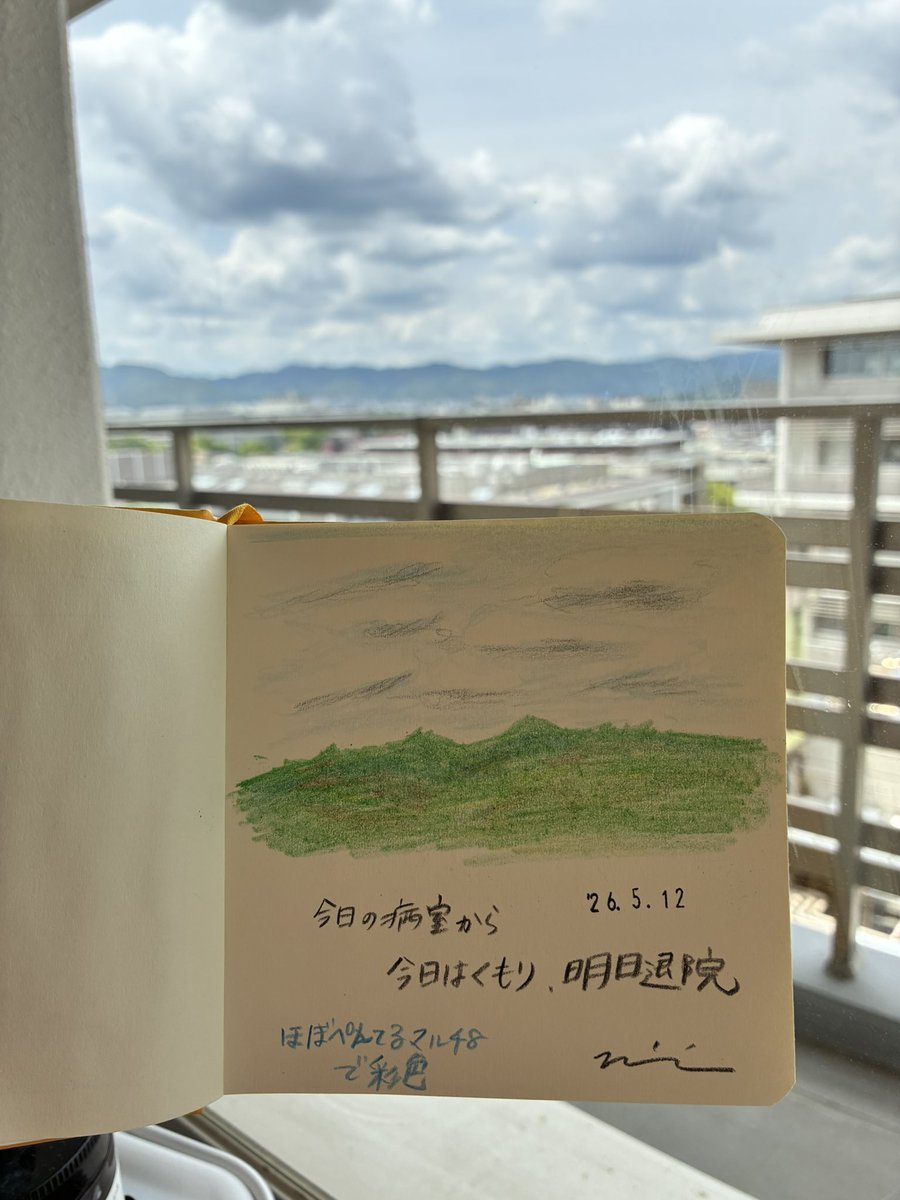 今日の病室から
'26.5.12
今日はくもり、明日退院
ほぼぺんてるマルチ8
で彩色